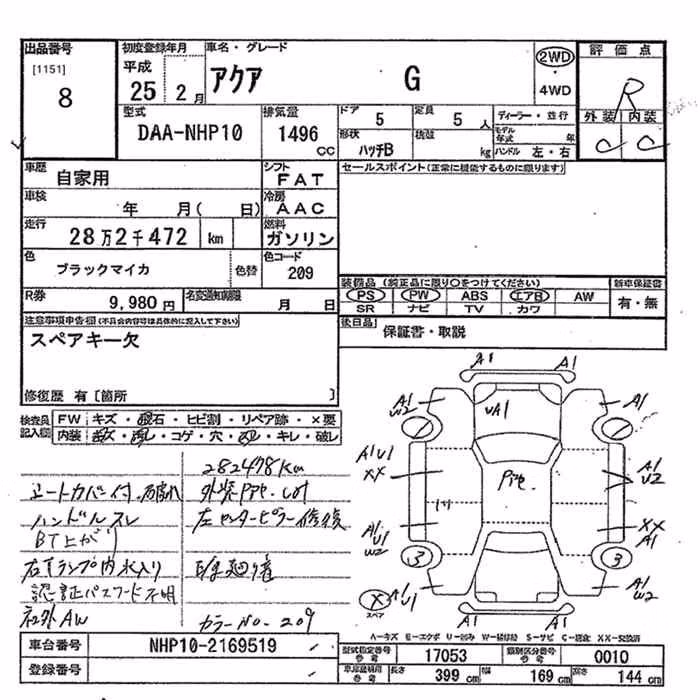 出品番号 初度登録年月 車名・グレード 評価点
[1151] 8
平成 25 2月
アクア G
2WD
4WD
R
外装 内装
C C
型式 DAA-NHP10
排気量 1496 CC
ドア 5 定員 5人
ディーラー・並行
形状 ハッチB 積載 kg
モデル年式 年
ハンドル 左・右
車歴 自家用
シフト FAT
セールスポイント(正常に機能するものに限ります)
車検 年 月( 日)
冷房 AAC
走行 28万2千472 km
燃料 ガソリン
色 ブラックマイカ 色替
色コード 209
装備品(純正品に限り○をつけてください) 新車保証書
PS PW ABS エアB AW 有・無
SR ナビ TV カワ
R券 9,980円
名変通知期限 月 日
後日品 保証書・取説
注意事項申告欄(不具合内容等は具体的に記入して下さい)
スペアキー欠
修復歴 有[箇所 ]
検査員記入欄
FW キズ・飛石・ヒビ割・リペア跡・×要
内装 キズ・汚れ・コゲ・穴・凹・キレ・破レ
282478Km
シートカバー付、
ハンドルスレ 左センターピラー修復
BT上がり
右テランプ内水入り
認証パスワード不明
社外AW カラーNo. 209
A1 A1
A1 W2 UA1 A1
A1 U1 XX Pite. A1 U2
A1 U1 W2 XX A1
3 3
X スペア A1 U1 A1 W2
A1 A1
A―キズ E―エクボ U―凹み W―補修跡 S―サビ C―腐食 XX―交換済
車台番号 NHP10-2169519
登録番号
型式指定番号 参考 17053 類別区分番号 参考 0010
車庫証明用 参考 長さ 399 cm 幅 169 cm 高さ 144 cm